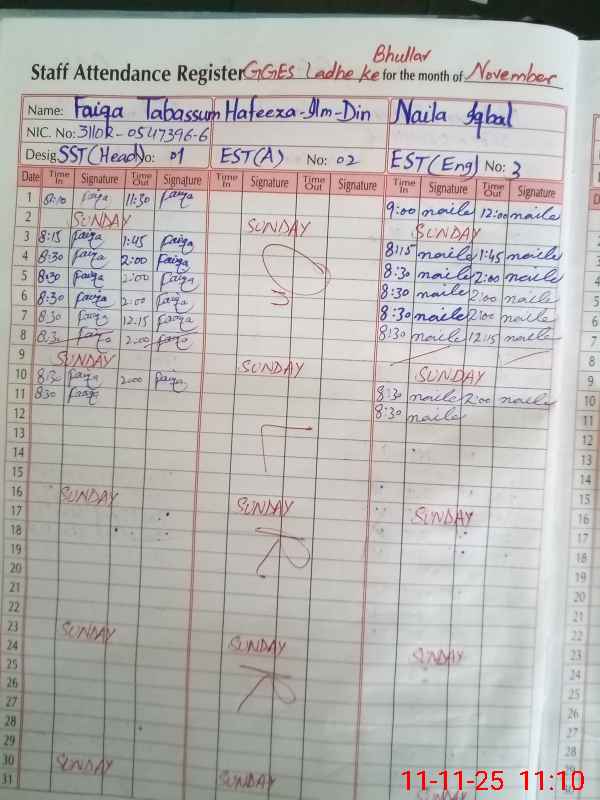 Bhullar
Staff Attendance Register GGES Ladhe ke for the month of November
Name: Faiqa Tabassum Hafeeza-Ilm-Din Naila Iqbal
NIC. No: 31102-0547396-6
Desig SST(Head) No: 01 EST(A) No: 02 EST(Eng) No: 3
Date Time In Signature Time Out Signature Time In Signature Time Out Signature Time In Signature Time Out Signature
1 8:10 Faiqa 11:30 Faiqa 9:00 naila 12:00 naila
2 SUNDAY SUNDAY SUNDAY
3 8:15 Faiqa 1:45 Faiqa 8:15 naila 1:45 naila
4 8:30 Faiqa 2:00 Faiqa 8:30 naila 2:00 naila
5 8:30 Faiqa 2:00 Faiqa 8:30 naila 2:00 naila
6 8:30 Faiqa 2:00 Faiqa 8:30 naila 2:00 naila
7 8:30 Faiqa 12:15 Faiqa 8:30 naila 12:15 naila
8 8:30 Faiqa 2:00 Faiqa
9 SUNDAY SUNDAY SUNDAY
10 8:30 Faiqa 2:00 Faiqa 8:30 naila 2:00 naila
11 8:30 Faiqa 8:30 naila
12
13
14
15
16 SUNDAY SUNDAY SUNDAY
17
18
19
20
21
22
23 SUNDAY SUNDAY SUNDAY
24
25
26
27
28
29
30 SUNDAY SUNDAY SUNDAY
31
11-11-25 11:10